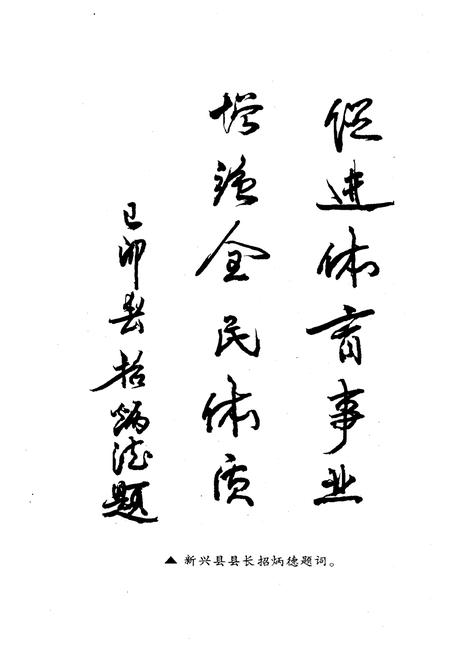 促进体育事业
增强全民体质
己卯春招炳德题
▲ 新兴县县长招炳德题词。